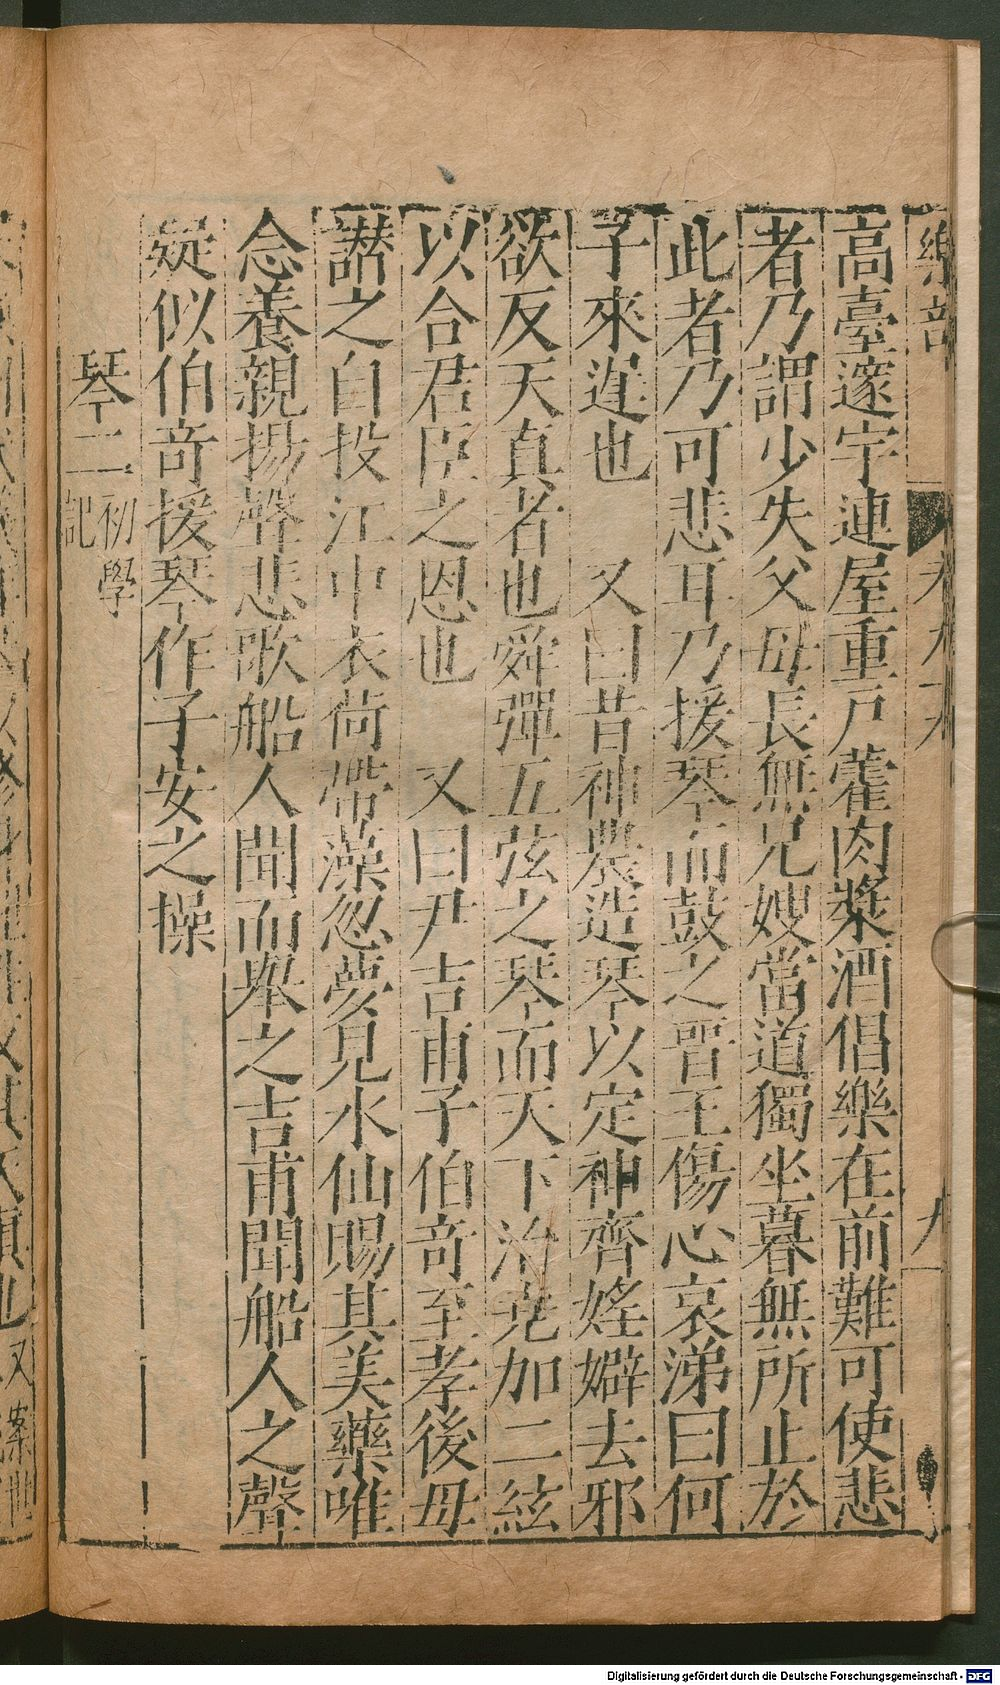 樂部
卷九十六
九
高臺邃宇連屋重戶藿肉漿酒倡樂在前難可使悲
者乃謂少失父母長無兄嫂當道獨坐暮無所止於
此者乃可悲耳乃援琴而鼓之晋王傷心哀涕曰何
子來遲也　又曰昔神農造琴以定神齊婬嬖去邪
欲反天真者也舜彈五弦之琴而天下治堯加二絃
以合君臣之恩也　又曰尹吉甫子伯奇至孝後母
譖之自投江中衣荷帶藻忽夢見水仙賜其美藥唯
念養親揚聲悲歌船人聞而學之吉甫聞船人之聲
疑似伯奇援琴作子安之操
琴二初學記
Digitalisierung gefördert durch die Deutsche Forschungsgemeinschaft - DFG